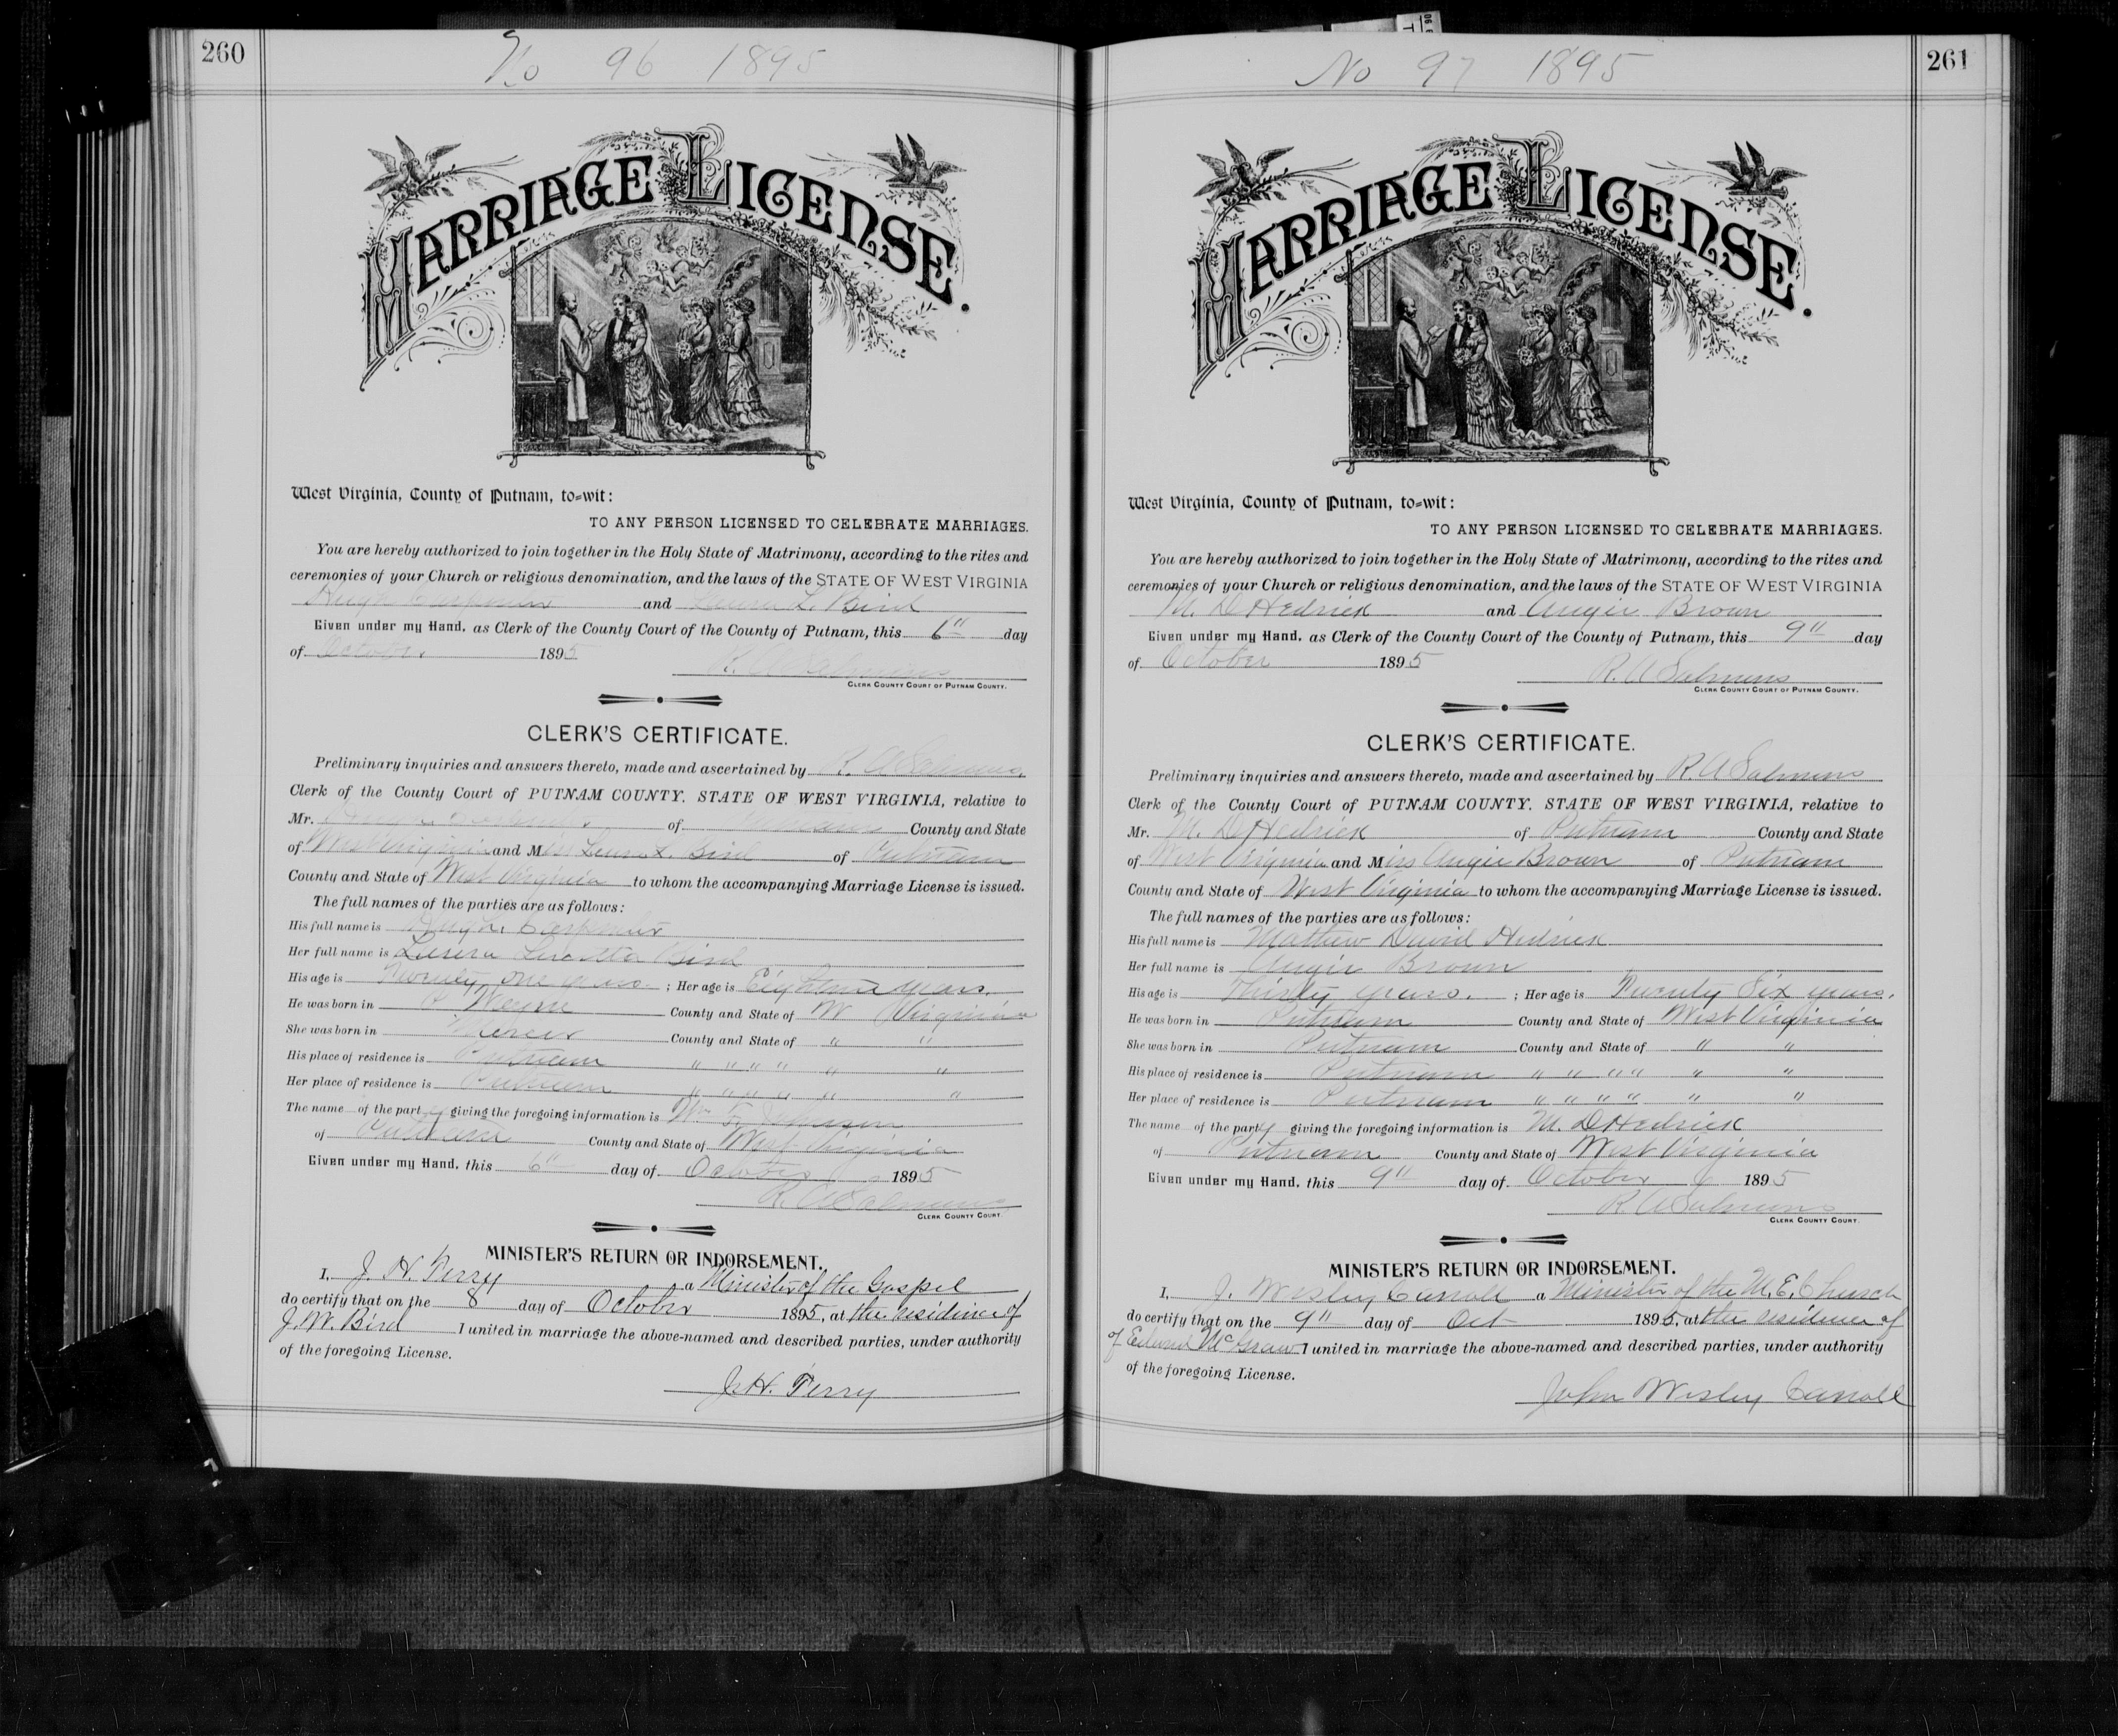 260
No 96 1895
MARRIAGE LICENSE.
West Virginia, County of Putnam, to=wit:
TO ANY PERSON LICENSED TO CELEBRATE MARRIAGES.
You are hereby authorized to join together in the Holy State of Matrimony, according to the rites and
ceremonies of your Church or religious denomination, and the laws of the STATE OF WEST VIRGINIA
Hugh Carpenter and Laura L. Bird
Given under my Hand, as Clerk of the County Court of the County of Putnam, this 6" day
of October 1895
R. A Salmons
CLERK COUNTY COURT OF PUTNAM COUNTY.
CLERK'S CERTIFICATE.
Preliminary inquiries and answers thereto, made and ascertained by R. A Salmons,
Clerk of the County Court of PUTNAM COUNTY. STATE OF WEST VIRGINIA, relative to
Mr. Hugh Carpenter of Putnam County and State
of West Virginia and Miss Laura L. Bird of Putnam
County and State of West Virginia to whom the accompanying Marriage License is issued.
The full names of the parties are as follows:
His full name is Hugh Carpenter
Her full name is Bird
His age is Twenty one years ; Her age is Eighteen years.
He was born in Wayne County and State of W Virginia
She was born in Mercer County and State of " "
His place of residence is Putnam " " " " " "
Her place of residence is Putnam " " " " " "
The name of the party giving the foregoing information is Wm
of Putnam County and State of West Virginia
Given under my Hand, this 6" day of October 1895
R. A Salmons
CLERK COUNTY COURT.
MINISTER'S RETURN OR INDORSEMENT.
I, J. H. Perry a Minister of the Gospel
do certify that on the 8 day of October 1895, at the residence of
J. W. Bird I united in marriage the above-named and described parties, under authority
of the foregoing License.
J. H. Perry
261
No 97 1895
MARRIAGE LICENSE.
West Virginia, County of Putnam, to=wit:
TO ANY PERSON LICENSED TO CELEBRATE MARRIAGES.
You are hereby authorized to join together in the Holy State of Matrimony, according to the rites and
ceremonies of your Church or religious denomination, and the laws of the STATE OF WEST VIRGINIA
M. D Hedrick and Angie Brown
Given under my Hand, as Clerk of the County Court of the County of Putnam, this 9" day
of October 1895
R. A Salmons
CLERK COUNTY COURT OF PUTNAM COUNTY.
CLERK'S CERTIFICATE.
Preliminary inquiries and answers thereto, made and ascertained by R. A Salmons
Clerk of the County Court of PUTNAM COUNTY. STATE OF WEST VIRGINIA, relative to
Mr. M. D Hedrick of Putnam County and State
of West Virginia and Miss Angie Brown of Putnam
County and State of West Virginia to whom the accompanying Marriage License is issued.
The full names of the parties are as follows:
His full name is Mathew David Hedrick
Her full name is Angie Brown
His age is Thirty years. ; Her age is Twenty Six years.
He was born in Putnam County and State of West Virginia
She was born in Putnam County and State of " "
His place of residence is Putnam " " " " " "
Her place of residence is Putnam " " " " " "
The name of the party giving the foregoing information is M. D Hedrick
of Putnam County and State of West Virginia
Given under my Hand, this 9" day of October 1895
R. A Salmons
CLERK COUNTY COURT.
MINISTER'S RETURN OR INDORSEMENT.
I, J. Wesley Carroll a Minister of the M. E. Church
do certify that on the 9" day of Oct 1895, at the residence of
of Edward McGraw I united in marriage the above-named and described parties, under authority
of the foregoing License.
John Wesley Carroll